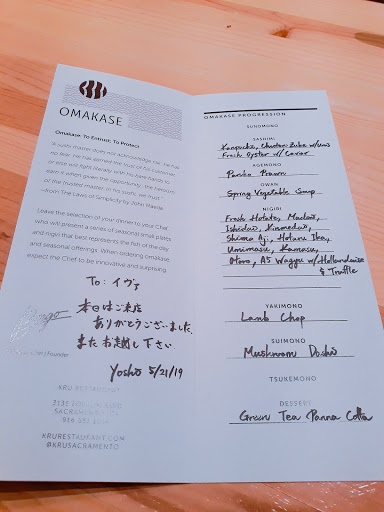 OMAKASE
Omakase: To Entrust; To Protect
"A sushi master does not acknowledge me. He has
earn it when given the opportunity, the honours
of the trusted master. In his sushi, we trust."
—from The Laws of Simplicity by John Maeda
Leave the selection of your dinner to your Chef,
who will present a series of seasonal small plates
and nigiri that best represents the fish of the day
and seasonal offerings. When ordering omakase,
expect the Chef to be innovative and surprising.
To: イヴァ
本日はご来店
ありがとうございました
またお越し下さい
| Founder
Yoshio 5/21/19
KRU RESTAURANT
3135
SACRAMENTO, CA
916 551 1559
KRURESTAURANT.COM
@KRUSACRAMENTO
OMAKASE PROGRESSION
SUNOMONO
SASHIMI
Kanpachi, Chutoro Zuke w/ uni
Fresh Oyster w/ Caviar
AGEMONO
Panko Prawn
OWAN
Spring Vegetable Soup
NIGIRI
Fresh Hotate, Madai,
Ishidai, Kinmedai,
Shima Aji, Hotaru Ika,
Umimasu, Kamasu,
Otoro, A5 Wagyu w/ Hollandaise
& Truffle
YAKIMONO
Lamb Chop
SUIMONO
Mushroom Dashi
TSUKEMONO
DESSERT
Green Tea Panna Cotta